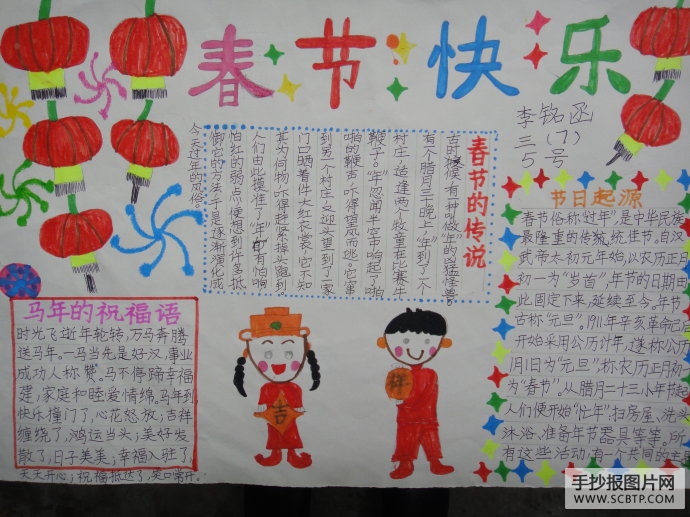 春节快乐
李铭函
三(7)
5号
春节的传说
古时候,有一种叫做“年”的猛怪兽。
有个腊月三十晚上,“年”到了一个
村庄,适逢两个牧童在比赛牛
鞭子。“年”忽闻半空中响起了啪
啪的鞭声,吓得望风而逃。它窜
到另一个村庄,又迎头望到了一家
门口晒着件大红衣裳,它不知
其为何物,吓得赶紧掉头逃跑。
人们由此摸准了“年”有怕响,
怕红的弱点,便想到许多抵
御它的方法,于是逐渐演化成
今天过年的风俗。
节日起源
春节俗称“过年”,是中华民族
最隆重的传统佳节。自汉
武帝太初元年始,以农历正月
初一为“岁首”,年节的日期由
此固定下来,延续至今。年节
古称“元旦”。1911年辛亥革命已后
开始采用公历计年,遂称公历
1月1日为“元旦”,称农历正月初
为“春节”。从腊月二十三小年节起
人们便开始“忙年”:扫房屋、洗头
沐浴、准备年节器具等等。所
有这些活动,有一个共同的主
马年的祝福语
时光飞逝年轮转,万马奔腾
送马年。一马当先是好汉,事业
成功人称赞。马不停蹄幸福
建,家庭和睦爱情绵。马年到
快乐撞门了,心花怒放;吉祥
缠绕了,鸿运当头;美好发
散了,日子美美;幸福入驻了,
天天开心;祝福抵达了,笑口常开。
吉
祥
手抄报图片网
WWW.SCBTP.COM